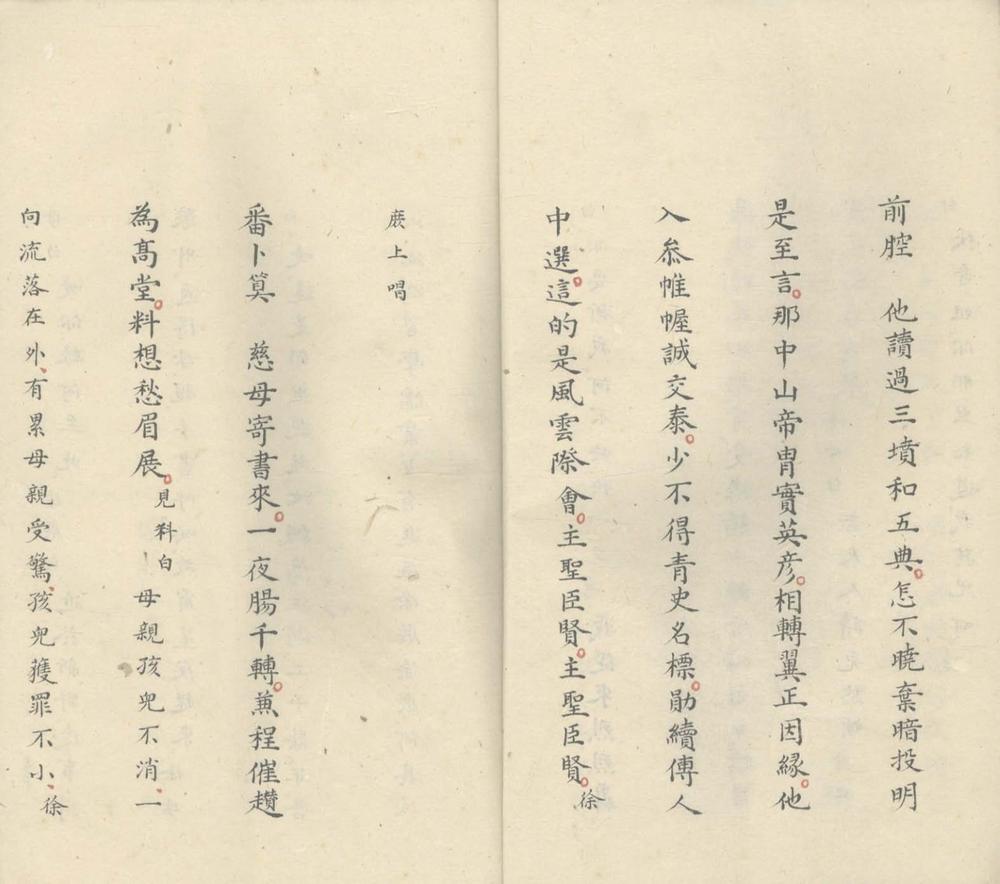 前腔　他讀過三墳和五典。怎不曉棄暗投明
是至言。那中山帝冑實英彦。相轉翼正因緣。他
入叅帷幄誠交泰。少不得青史名標。勛續傳人
中選。這的是風雲際會。主聖臣賢。主聖臣賢。徐
庶上唱
番卜筭　慈母寄書來。一夜腸千轉。蕪程催趲
為髙堂。料想愁眉展。見科白　母親孩兒不消、一
向流落在外、有累母親受驚、孩兒獲罪不小、徐